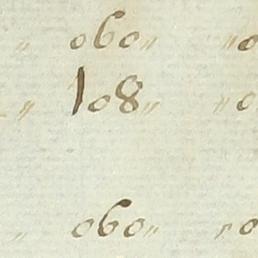 „ 060 „ „0
„ 108 „ „0
„ 060 „ „0